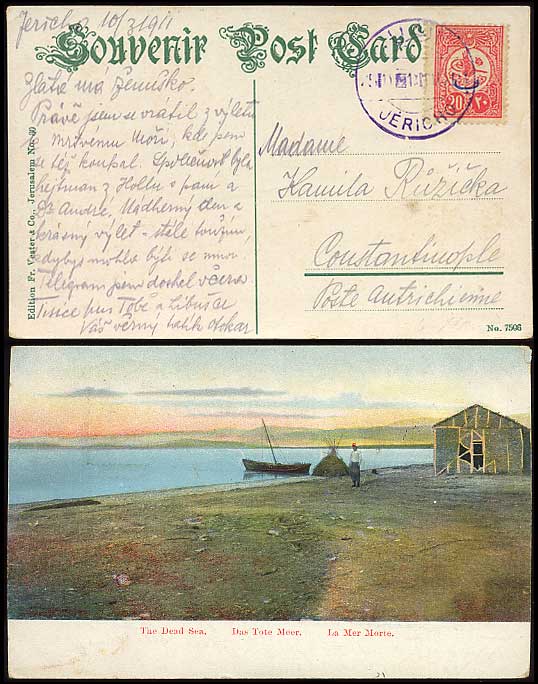 Jericho 10/3 1911
Souvenir Post Card
Zlatá má ženuško.
Právě jsem se vrátil z výletu
k Mrtvému Moři, kde jsem
se též koupal. Společnost byla
hejtman z Hollu s paní a
Dr André, Nádherný den a
krásný výlet - stále toužím,
kdybys mohla býti se mnou
Telegram jsem dostal včera
Tisíce pus Tobě a Libušce
Váš věrný tatík Otokar
Edition Fr. Vester & Co., Jerusalem No. 40
JÉRICHO
20 ٢٠
Madame
Kamila Růžička
Constantinople
Poste Autrichienne
No. 7506
The Dead Sea. Das Tote Meer. La Mer Morte.